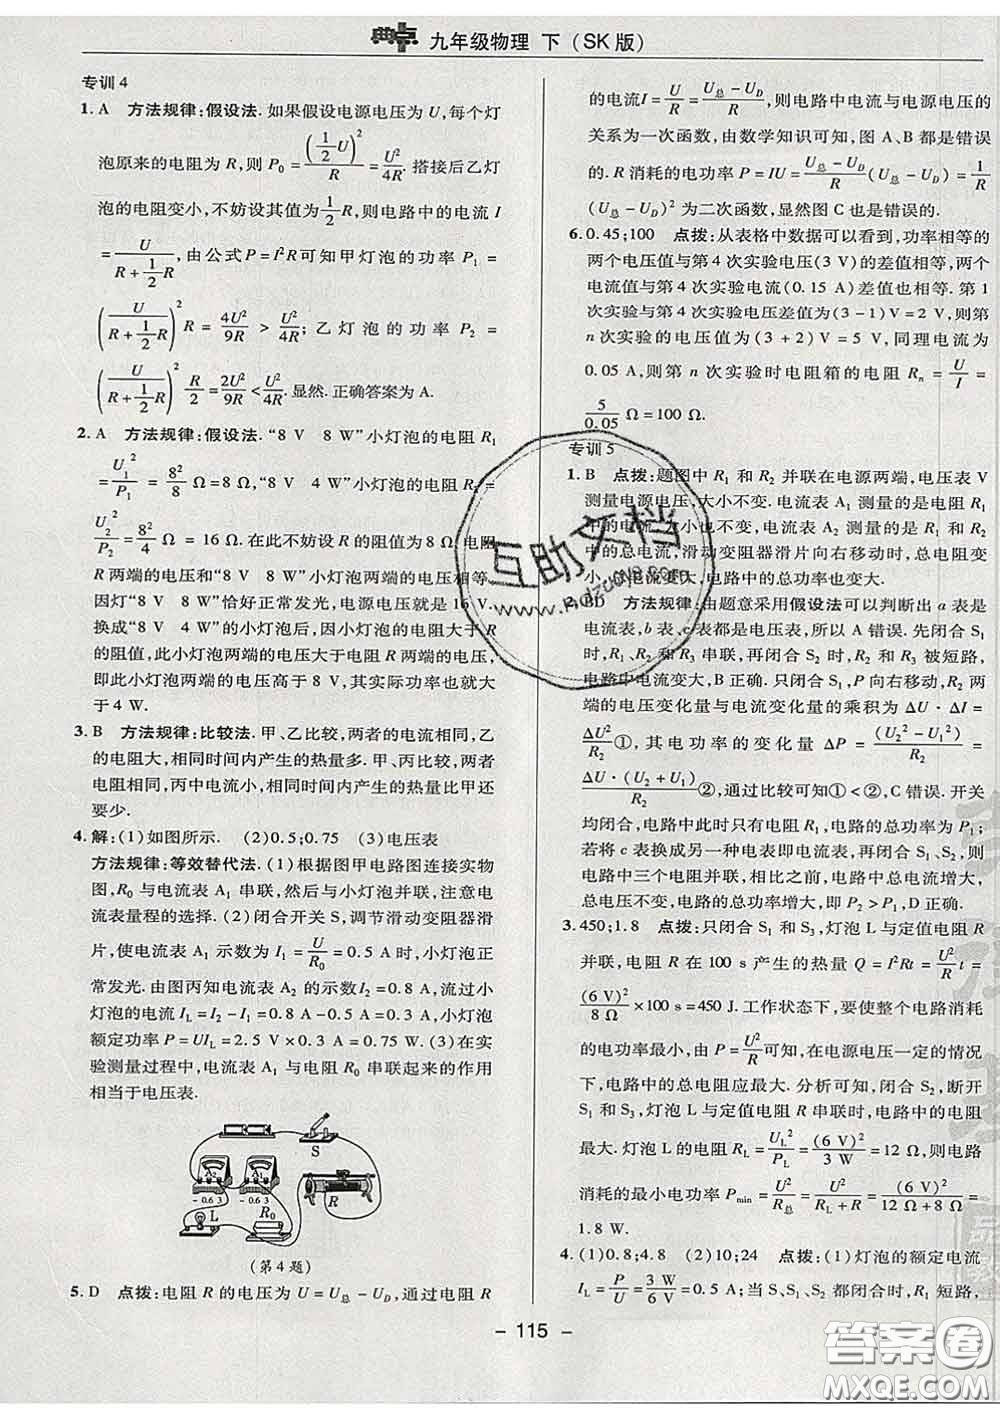 典点 九年级物理 下(SK版)
专训4
1. A 方法规律:假设法. 如果假设电源电压为 U,每个灯
泡原来的电阻为 R,则 P₀ = (½U)²/R = U²/4R. 搭接后乙灯
泡的电阻变小,不妨设其值为½R,则电路中的电流 I
= U/(R + ½R),由公式 P = I²R 可知甲灯泡的功率 P₁ =
(U/(R + ½R))² R = 4U²/9R > U²/4R;乙灯泡的功率 P₂ =
(U/(R + ½R))² R/2 = 2U²/9R < U²/4R. 显然. 正确答案为 A.
2. A 方法规律:假设法. “8 V 8 W”小灯泡的电阻 R₁
= U₁²/P₁ = 8²/8 Ω = 8 Ω,“8 V 4 W”小灯泡的电阻 R₂ =
U₂²/P₂ = 8²/4 Ω = 16 Ω. 在此不妨设 R 的阻值为 8 Ω,电阻
R 两端的电压和“8 V 8 W”小灯泡两端的电压相等.
因灯“8 V 8 W”恰好正常发光,电源电压就是 16 V.
换成“8 V 4 W”小灯泡后,因小灯泡的电阻大于 R
的阻值,此小灯泡两端的电压大于电阻 R 两端的电压,
即此小灯泡两端的电压高于 8 V,其实际功率也就大
于 4 W.
3. B 方法规律:比较法. 甲、乙比较,两者的电流相同,乙
的电阻大,相同时间内产生的热量多. 甲、丙比较,两者
电阻相同,丙中电流小,相同时间内产生的热量比甲还
要少.
4. 解:(1)如图所示. (2)0.5;0.75 (3)电压表
方法规律:等效替代法. (1)根据图甲电路图连接实物
图,R₀ 与电流表 A₁ 串联,然后与小灯泡并联,注意电
流表量程的选择. (2)闭合开关 S,调节滑动变阻器滑
片,使电流表 A₁ 示数为 I₁ = U/R₀ = 0.5 A 时,小灯泡正
常发光. 由图丙知电流表 A₂ 的示数 I₂ = 0.8 A,流过小
灯泡的电流 I_L = I₂ − I₁ = 0.8 A − 0.5 A = 0.3 A,小灯泡
额定功率 P = UI_L = 2.5 V × 0.3 A = 0.75 W. (3)在实
验测量过程中,电流表 A₁ 与电阻 R₀ 串联起来的作用
相当于电压表.
S
A₂ A₁
- 0.6 3 - 0.6 3
R
L R₀
(第4题)
5. D 点拨:电阻 R 的电压为 U = U总 − U_D,通过电阻 R
的电流 I = U/R = (U总 − U_D)/R,则电路中电流与电源电压的
关系为一次函数,由数学知识可知,图 A、B 都是错误
的. R 消耗的电功率 P = IU = (U总 − U_D)/R (U总 − U_D) = 1/R
(U总 − U_D)² 为二次函数,显然图 C 也是错误的.
6. 0.45;100 点拨:从表格中数据可以看到,功率相等的
两个电压值与第 4 次实验电压(3 V)的差值相等,两个
电流值与第 4 次实验电流(0.15 A)差值也相等. 第 1
次实验与第 4 次实验电压差值为(3 − 1)V = 2 V,则第
n 次实验的电压值为(3 + 2)V = 5 V,同理电流为
0.05 A,则第 n 次实验时电阻箱的电阻 Rₙ = U/I =
5/0.05 Ω = 100 Ω.
专训5
1. B 点拨:题图中 R₁ 和 R₂ 并联在电源两端,电压表 V
测量电源电压,大小不变. 电流表 A₁ 测量的是电阻 R₁
中的电流,大小也不变,电流表 A 测量的是 R₁ 和 R₂
中的总电流,滑动变阻器滑片向右移动时,总电阻变
小,电流变大,电路中的总功率也变大.
BD 方法规律:由题意采用假设法可以判断出 a 表是
电流表,b 表、c 表都是电压表,所以 A 错误. 先闭合 S₁
时,R₁、R₂、R₃ 串联,再闭合 S₂ 时,R₁ 和 R₃ 被短路,
电路中电流变大,B 正确. 只闭合 S₁ 到再闭合 S₂,R₂ 两
端的电压变化量与电流变化量的乘积为 ΔU · ΔI =
ΔU²/R₂①,其电功率的变化量 ΔP = (U₂² − U₁²)/R₂ =
ΔU·(U₂ + U₁)/R₂②,通过比较可知① < ②,C 错误. 开关
均闭合,电路中此时只有电阻 R₂,电路的总功率为 P₁;
若将 c 表换成另一种电表即电流表,再闭合 S₁、S₂,则
电路中三个电阻并联,相比之前电路的总电流增大,
总电压不变,电路的总功率增大,即 P₂ > P₁,D 正确.
3. 450;1.8 点拨:只闭合 S₁ 和 S₃,灯泡 L 与定值电阻 R
并联,电阻 R 在 100 s 产生的热量 Q = I²Rt = U²/R t =
(6 V)²/8 Ω × 100 s = 450 J. 工作状态下,要使整个电路消耗
的电功率最小,由 P = U²/R 可知,在电源电压一定的情况
下,电路中的总电阻应最大. 分析可知,闭合 S₂,断开
S₁ 和 S₃,灯泡 L 与定值电阻 R 串联时,电路中的电阻
最大. 灯泡 L 的电阻 R_L = U_L²/P_L = (6 V)²/3 W = 12 Ω,则电路
消耗的最小电功率 P_min = U²/R总 = U²/(R_L + R) = (6 V)²/(12 Ω + 8 Ω) =
1.8 W.
4. (1)0.8;4.8 (2)10;24 点拨:(1)灯泡的额定电流
I_L = P/U = 3 W/6 V = 0.5 A;当 S、S₁、S₂ 都闭合时,R₁ 短路,
- 115 -
互助文档
答案圈
MXQE.COM